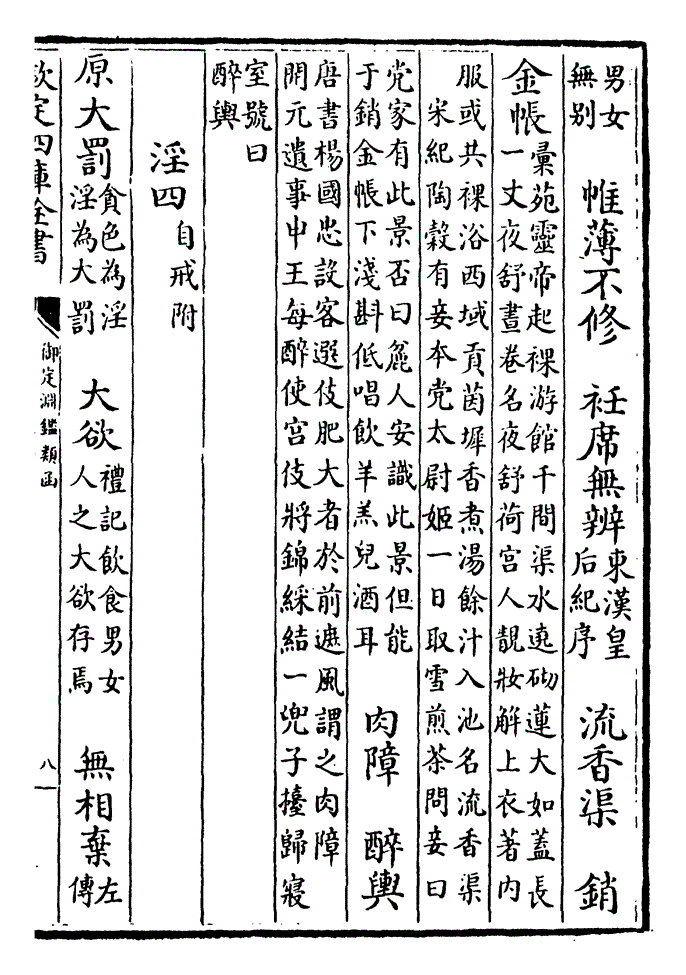 男女無别　帷薄不修　衽席無辨東漢皇后紀序　流香渠　銷
金帳彙苑靈帝起裸游館千間渠水遶砌蓮大如蓋長一丈夜舒晝卷名夜舒荷宫人靚妝解上衣著内
服或共裸浴西域貢茵墀香煮湯餘汁入池名流香渠宋紀陶穀有妾本党太尉姬一日取雪煎茶問妾曰
党家有此景否曰麄人安識此景但能于銷金帳下淺斟低唱飲羊羔兒酒耳　肉障　醉輿
唐書楊國忠設客選伎肥大者於前遮風謂之肉障開元遺事申王每醉使宫伎將錦綵結一兜子擡歸寢
室號曰醉輿
淫四自戒附
原大罰貪色為淫淫為大罰　大欲禮記飲食男女人之大欲存焉　無相棄左傳
欽定四庫全書　御定淵鑑類函　八